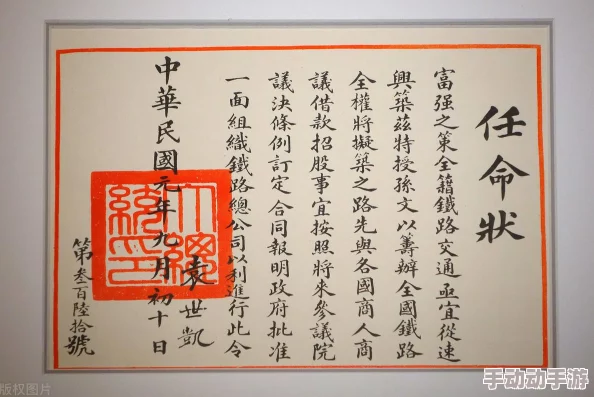 任命狀
富强之策全籍鐵路交通亟宜從速
興築茲特授孫文以籌辦全國鐵路
全權將擬築之路先與各國商人商
議借款招股事宜按照將來參議院
議決條例訂定合同報明政府批准
一面組織鐵路總公司以利進行此令
袁世凱
中華民國元年九月初十日
第叁百陸拾號
大總統印
版权图片
手动动手游